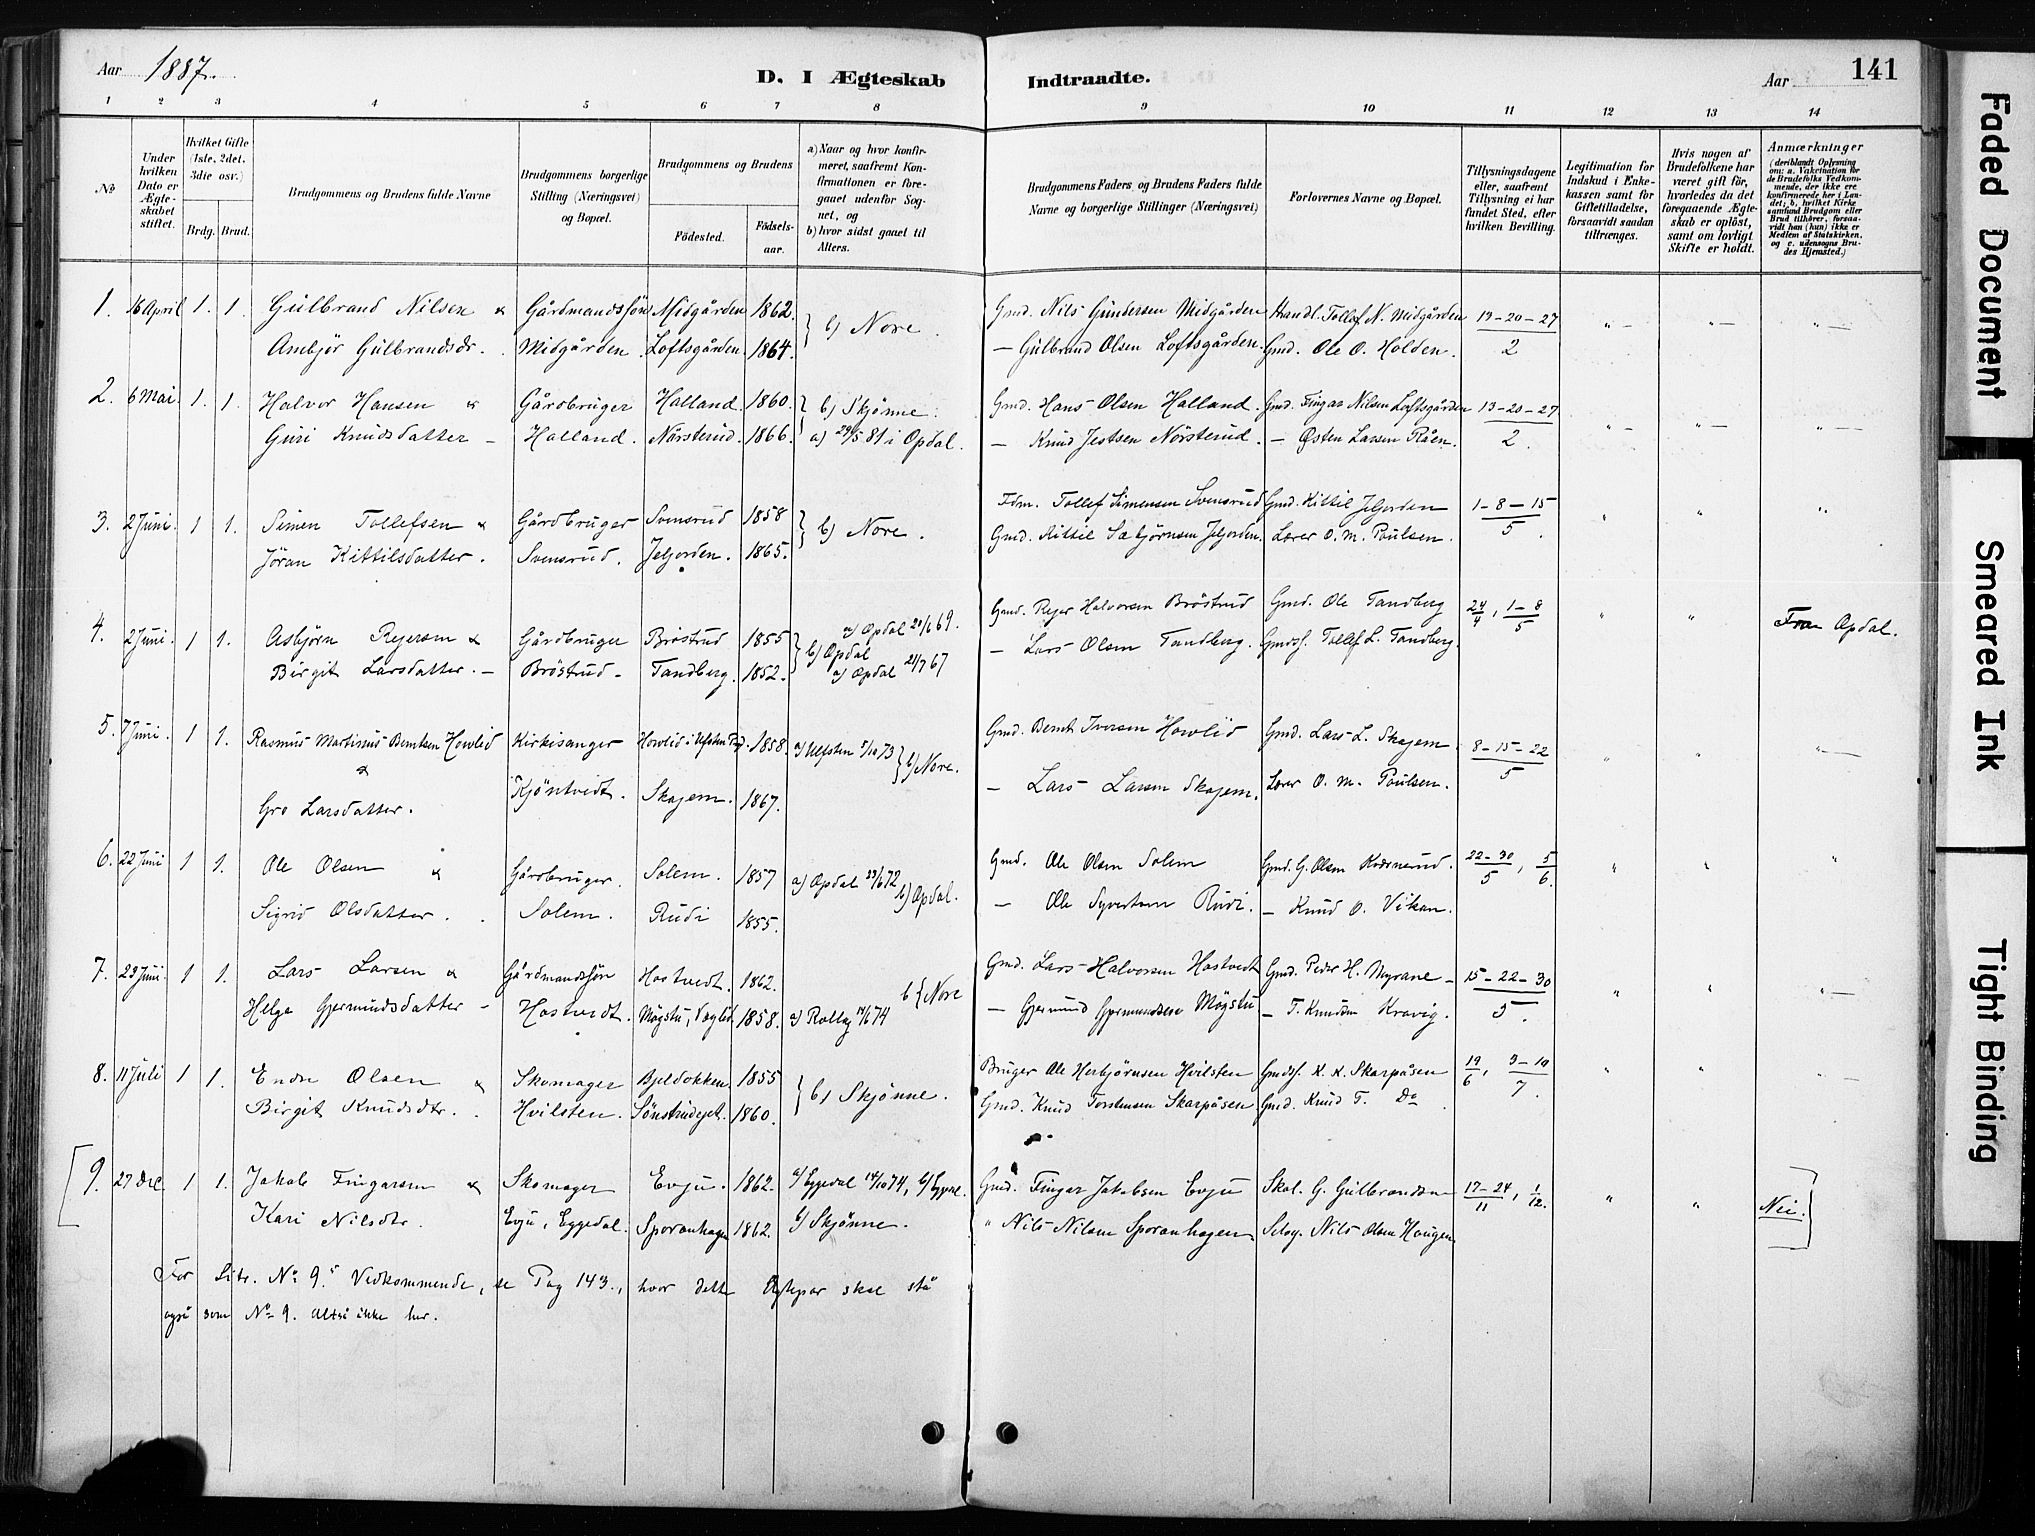 Aar 1887.
D. I Ægteskab Indtraadte.
Aar
141
1 2 3 4 5 6 7 8 9 10 11 12 13 14
No
Under hvilken Dato er Ægteskabet stiftet.
Hvilket Gifte (1ste, 2det, 3die osv.)
Brdg. Brud.
Brudgommens og Brudens fulde Navne
Brudgommens borgerlige Stilling (Næringsvei) og Bopæl.
Brudgommens og Brudens
Födested.
Födsels-aar.
a) Naar og hvor konfirmeret, saafremt Konfirmationen er foregaaet udenfor Sognet, og
b) hvor sidst gaaet til Alters.
Brudgommens Faders og Brudens Faders fulde Navne og borgerlige Stillinger (Næringsvei)
Forlovernes Navne og Bopæl.
Tillysningsdagene eller, saafremt Tillysning ei har fundet Sted, efter hvilken Bevilling.
Legitimation for Indskud i Enkekassen samt for Giftetilladelse, forsaavidt saadan tiltrænges.
Hvis nogen af Brudefolkene har været gift för, hvorledes da det foregaaende Ægteskab er oplöst, samt om lovligt Skifte er holdt.
Anmærkninger (deriblandt Oplysning om: a. Vakcination for de Brudefolks Vedkommende, der ikke ere konfirmerede her i Landet; b. hvilket Kirkesamfund Brudgom eller Brud tilhörer, forsaavidt han (hun) ikke er Medlem af Statskirken, og c. udensogns Brudes Hjemsted.)
1. 16 April 1. 1. Gulbrand Nilsen & Gårdmandssøn Midgården 1862. b) Nore. Gmd. Nils Gundersen Midgården Handl. Tollef N. Midgården 13-20-27
Ambjør Gulbrandsdr. Midgården. Loftsgården. 1864. — Gulbrand Olsen Loftsgården. Gmd. Ole O. Holden. 2
2. 6 Mai. 1. 1. Halvor Hansen & Gårdbruger Halland. 1860. b) Skjønne. Gmd. Hans Olsen Halland. Gmd. Fingar Nilsen Loftsgården 13-20-27
Guri Knudsdatter — Halland. Nørsterud. 1866. a) 29/5 81 i Opdal. — Knud Jestsen Nørsterud. — Østen Larsen Råen. 2.
3. 2 Juni. 1 1. Simen Tollefsen & Gårdbruger Svensrud 1858 b) Nore. Fdm. Tollef Simensen Svensrud Gmd. Kittil Jeljorden 1-8-15
Jøran Kittilsdatter. Svensrud. Jeljorden. 1865. Gmd. Kittil Sæbjørnsen Jeljorden. Lærer O. M. Paulsen. 5.
4. 2 Juni. 1 1. Asbjørn Rejersen & Gårdbruger Brøstrud 1855 a) Opdal 20/6 69. b) Opdal Gmd. Rejer Halvorsen Brøstrud Gmd. Ole Tandberg 24/4, 1-8/5 Fra Opdal.
Birgit Larsdatter. — Brøstrud — Tandberg. 1852. a) Opdal 21/7 67 — Lars Olsen Tandberg. Gmdss. Tollef L. Tandberg.
5. 7 Juni. 1 1. Rasmus Martinus Berntsen Howlid Kirkesanger Howlid i Ulfsten 1858. a) Ulfsten 5/10 73 b) Nore. Gmd. Bernt Iversen Howlid Gmd. Lars L. Skajem. 8-15-22
&
Gro Larsdatter. Kjøntvedt. Skajem. 1867. — Lars Larsen Skajem. Lærer O. M. Paulsen. 5
6. 22 Juni 1 1. Ole Olsen & Gårdbruger. Solem. 1857 a) Opdal 23/6 72 b) Opdal. Gmd. Ole Olsen Solem Gmd. G. Olsen Kværnerud. 22-30/5, 5/6.
Sigrid Olsdatter. Solem. Rudi 1855. — Ole Syvertsen Rudi. — Knud O. Vikan.
7. 23 Juni. 1 1. Lars Larsen & Gårdmandssøn Hostvedt. 1862. b) Nore Gmd. Lars Halvorsen Hostvedt Gmd. Peder H. Myrane — 15-22-30
Helga Gjermundsdatter — Hostvedt. Møgstu, Veglid 1858. a) Rollag 14/6 74 — Gjermund Gjermundsen Møgstu — T. Knudsen Kravig. 5.
8. 11 Juli 1 1. Endre Olsen & Skomager Bjeldokken 1855 b) Skjønne. Bruger Ole Herbjørnsen Hvilsten Gmdss. K. K. Skarpåsen 19/6, 3-10/7.
Birgit Knudsdtr. Hvilsten. Sønstrudejet. 1860. Gmd. Knud Torstensen Skarpåsen. Gmd. Knud T. Do
9. 27 Dec. 1 1. Jakob Fingarsen & Skomager Evju. 1862. a) Eggedal 14/10 74, b) Eggedal. Gmd. Fingar Jakobsen Evju Skol. G. Gulbrandsen 17-24/11, 1/12. Nei.
Kari Nilsdtr. Evju, Eggedal. Sporanhagen 1862. b) Skjønne. " Nils Nilsen Sporanhagen. Selvg. Nils Olsen Haugen
For Litr. No 9s Vedkommende, se Pag 143., hvor dette Ægtepar skal stå
også som No 9. Altså ikke her.
Faded Document
Smeared Ink
Tight Binding